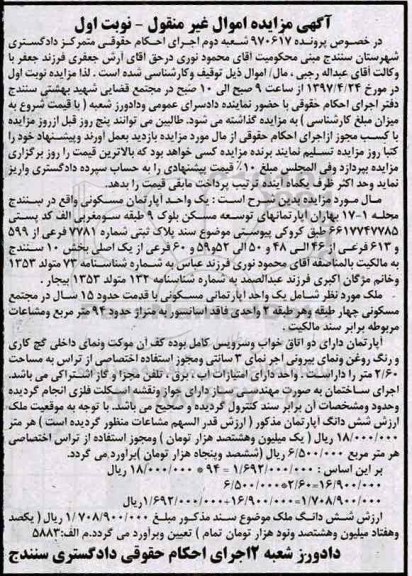 آگهی مزایده اموال غیر منقول - نوبت اول
در خصوص پرونده ۹۷۰۶۱۷ شعبه دوم اجرای احکام حقوقی متمرکز دادگستری
شهرستان سنندج مبنی محکومیت آقای محمود نوری درحق اقای آرش جعفری فرزند جعفر با
وکالت آقای عبداله رجبی ، مال/ اموال ذیل توقیف وکارشناسی شده است . لذا مزایده نوبت اول
در مورخ ۱۳۹۷/۴/۲۴ از ساعت ۹ صبح الی ۱۰ صبح در مجتمع قضایی شهید بهشتی سنندج
دفتر اجرای احکام حقوقی با حضور نماینده دادسرای عمومی ودادورز شعبه ( با قیمت شروع به
میزان مبلغ کارشناسی ) به مزایده گذاشته می شود. طالبین می توانند پنج روز قبل ازروز مزایده
با کسب مجوز ازاجرای احکام حقوقی از مال مورد مزایده بازدید بعمل آورند وپیشنهاد خود را
کتبا روز مزایده تسلیم نمایند برنده مزایده کسی خواهد بود که بالاترین قیمت را روز برگزاری
مزایده بپردازد وفی المجلس مبلغ ۱۰٪ قیمت پیشنهادی را به حساب سپرده دادگستری واریز
نماید وحد اکثر ظرف یکماه آینده ترتیب پرداخت مابقی قیمت را بدهد.
مال مورد مزایده بدین شرح است : یک واحد آپارتمان مسکونی واقع در سنندج
محله ۱-۱۷ بهاران آپارتمانهای توسعه مسکن بلوک ۹ طبقه سومغربی الف کد پستی
۶۶۱۷۷۴۷۷۸۵ طبق کروکی پیوستی موضوع سند پلاک ثبتی شماره ۷۷۸۱ فرعی از ۵۹۹
و ۶۱۳ فرعی از ۴۶ الی ۴۸ و ۵۰ الی ۵۲و۵۹ و ۶۰ فرعی از یک اصلی بخش ۱۰ سنندج
به مالکیت بالمناصفه آقای محمود نوری فرزند عباس به شماره شناسنامه ۷۳ متولد ۱۳۵۳
وخانم مژگان اکبری فرزند عبدالصمد به شماره شناسنامه ۱۳۲ متولد ۱۳۵۳ بیجار .
ملک مورد نظر شامل یک واحد آپارتمانی مسکونی با قدمت حدود ۱۵ سال در مجتمع
مسکونی چهار طبقه وهر طبقه ۲ واحدی فاقد اسانسور به متراژ حدود ۹۴ متر مربع ومشاعات
مربوطه برابر سند مالکیت .
آپارتمان دارای دو اتاق خواب وسرویس کامل بوده کف آن موکت ونمای داخلی گچ کاری
و رنگ روغن ونمای بیرونی آجر نمای ۳ سانتی ومجوز استفاده اختصاصی از تراس به مساحت
۲/۶۰ متر را داراست. واحد دارای امتیازات آب ، برق ، تلفن مجزا و گاز اشتراکی می باشد.
اجرای ساختمان به صورت مهندسی ساز دارای مجوز ونقشه اسکلت فلزی انجام گردیده
وحدود ومشخصات آن برابر سند کنترول گردیده و صحیح می باشد. با توجه به موقعیت ملک
ارزش شش دانگ آپارتمان مذکور ( ارزش قدر السهم مشاعات منظور گردیده است ) هر متر
۱۸/۰۰۰/۰۰۰ ریال ( یک میلیون وهشتصد هزار تومان ) ومجوز استفاده از تراس اختصاصی
هر متر مربع ۶/۵۰۰/۰۰۰ ریال (ششصد وپنجاه هزار تومان )برآورد می گردد.
بر این اساس : ۱/۶۹۲/۰۰۰/۰۰۰ = ۹۴ * ۱۸/۰۰۰/۰۰۰ ریال
۱۶/۹۰۰/۰۰۰=۲/۶۰*۶/۵۰۰/۰۰۰
۱/۷۰۸/۹۰۰/۰۰۰=۱۶/۹۰۰/۰۰۰+۱/۶۹۲/۰۰۰/۰۰۰ریال
ارزش شش دانگ ملک موضوع سند مذکور مبلغ ۱/۷۰۸/۹۰۰/۰۰۰ ریال ( یکصد
وهفتاد میلیون وهشتصد ونود هزار تومان تمام ) تعیین وبرآورد می گردد.م الف:۵۸۸۳
دادورز شعبه ۲اجرای احکام حقوقی دادگستری سنندج